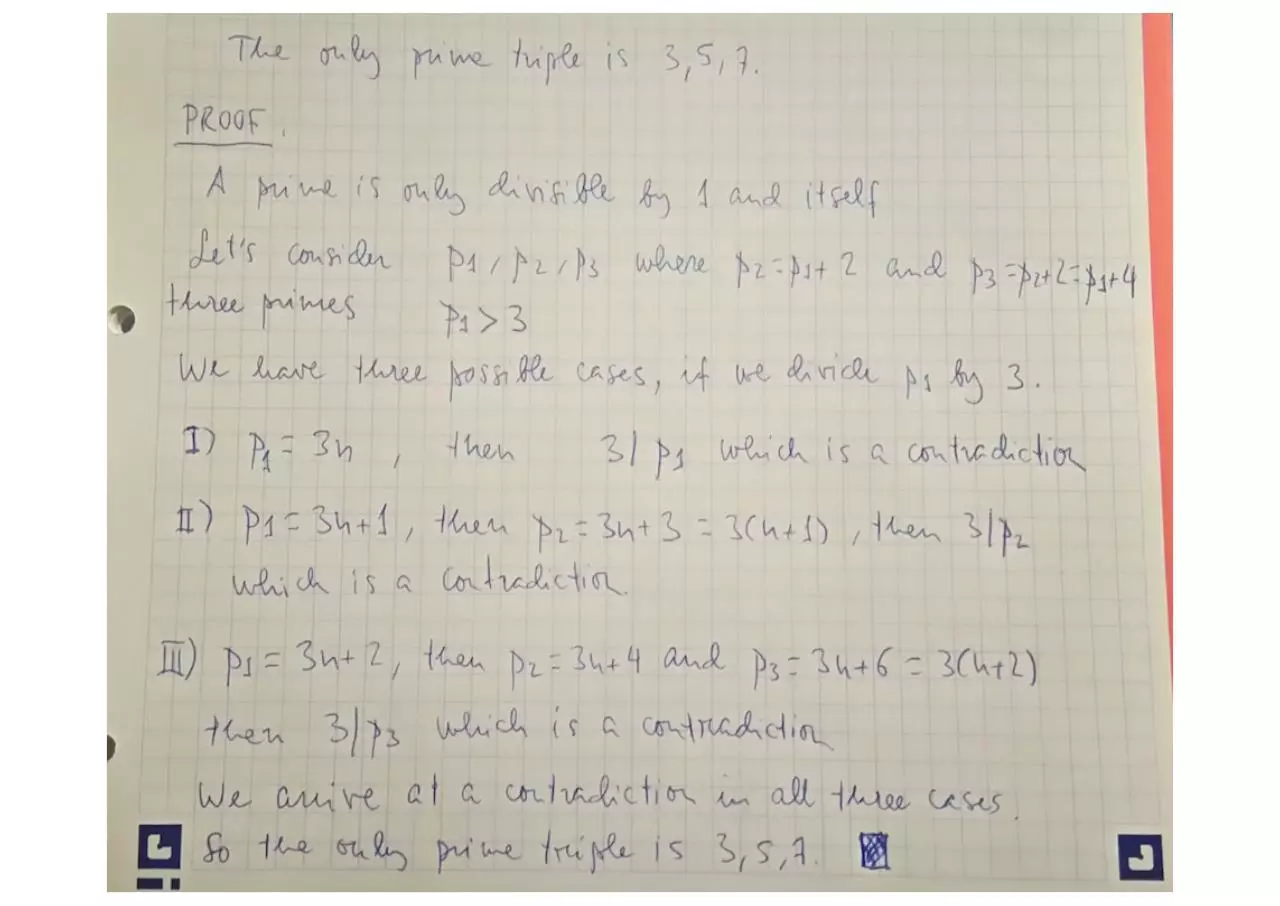 The only prime triple is 3, 5, 7.
PROOF.
A prime is only divisible by 1 and itself
Let's consider p1, p2, p3 where p2=p1+2 and p3=p2+2=p1+4
three primes p1>3
We have three possible cases, if we divide p1 by 3.
I) p1 = 3n, then 3|p1 which is a contradiction
II) p1 = 3n+1, then p2 = 3n+3 = 3(n+1), then 3|p2
which is a contradiction.
III) p1 = 3n+2, then p2 = 3n+4 and p3 = 3n+6 = 3(n+2)
then 3|p3 which is a contradiction
We arrive at a contradiction in all three cases.
So the only prime triple is 3, 5, 7.